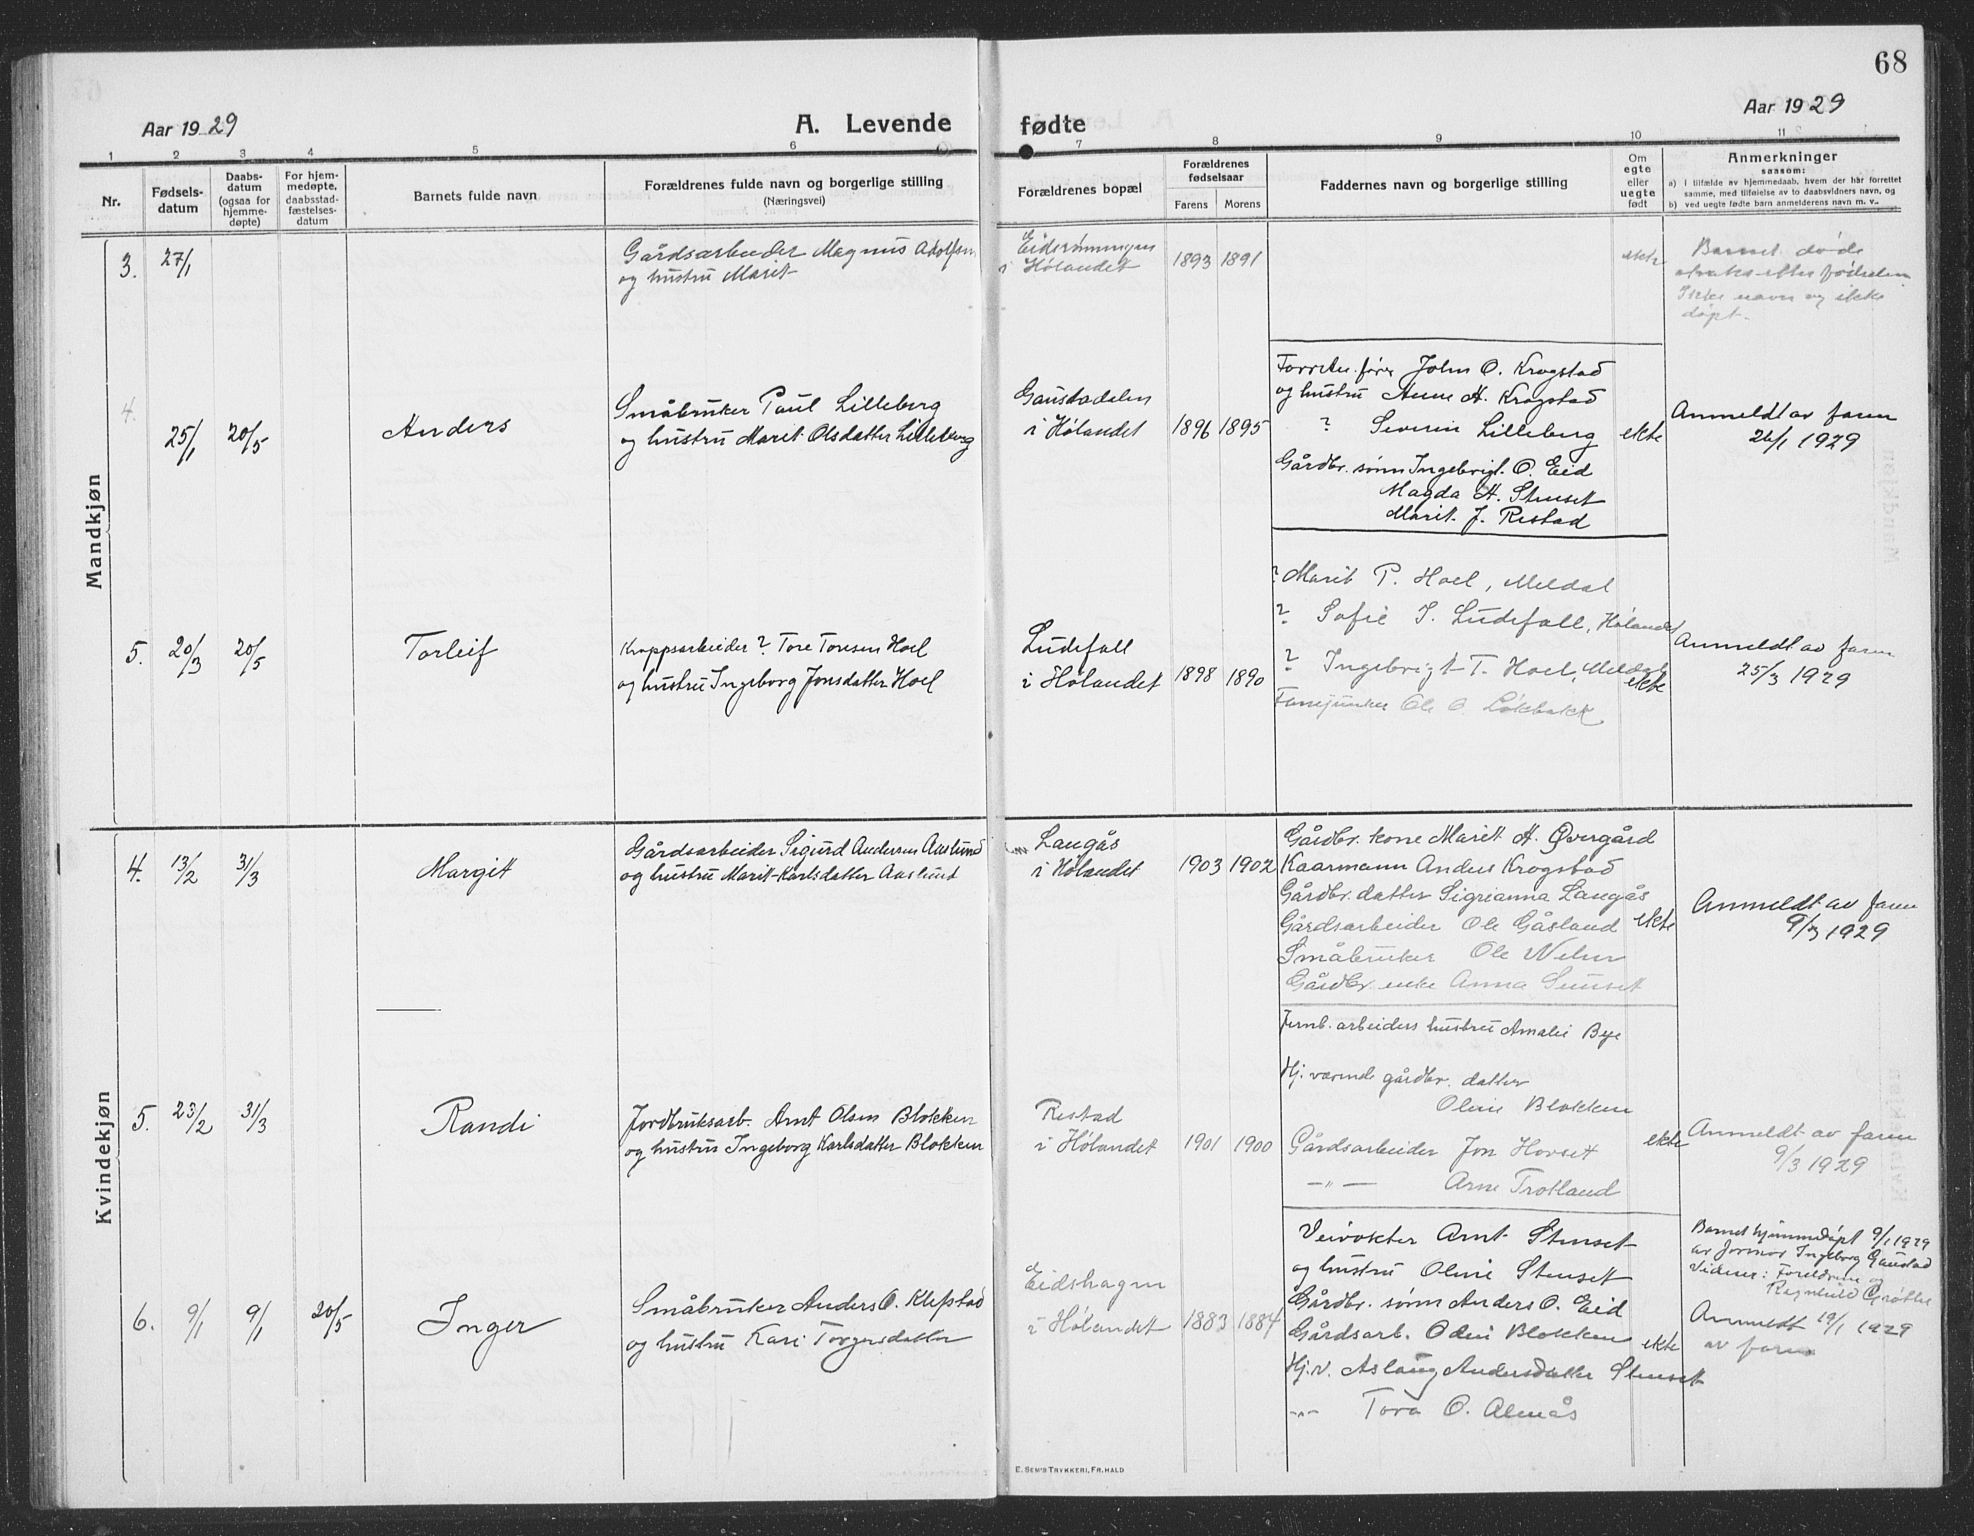 68
Aar 1929
A. Levende fødte
Aar 1929
1 2 3 4 5 6 7 8 9 10 11
Nr.
Fødsels-
datum
Daabs-
datum
(ogsaa for
hjemme-
døpte)
For hjem-
medøpte,
daabsstad-
fæstelses-
datum
Barnets fulde navn
Forældrenes fulde navn og borgerlige stilling
(Næringsvei)
Forældrenes bopæl
Forældrenes
fødselsaar
Farens Morens
Faddernes navn og borgerlige stilling
Om
egte
eller
uegte
født
Anmerkninger
saasom:
a) I tilfælde av hjemmedaab, hvem der har forrettet
samme, med tilføielse av to daabsvidners navn, og
b) ved uegte fødte barn anmelderens navn m. v..
Mandkjøn
3. 27/1
Gårdsarbeider Magnus Adolfsen
og hustru Marit
Eidsrønningen
i Hølandet
1893 1891
ekte
Barnet døde
straks efter fødselen
Ikke navn og ikke
døpt.
4. 25/1 20/5
Anders
Småbruker Paul Lilleberg
og hustru Marit Olsdatter Lilleberg
Gaustadalen
i Hølandet
1896 1895
Forretn. fører John O. Krogstad
og hustru Anne H. Krogstad
? Severin Lilleberg
Gårdbr. sønn Ingebrigt O. Eid
Magda H. Stenset
Marit J. Restad
ekte
Anmeldt av faren
26/1 1929
5. 20/3 20/5
Torleif
Kroppsarbeider? Tore Toresen Hoel
og hustru Ingeborg Jonsdatter Hoel
Ludefall
i Hølandet
1898 1890
? Marit P. Hoel, Meldal
? Sofie I. Ludefall, Hølandet
? Ingebrigt T. Hoel, Meldal
Fanejunker Ole O. Løkbakk
ekte
Anmeldt av faren
25/3 1929
Kvindekjøn
4. 13/2 31/3
Margit
Gårdsarbeider Sigurd Andersen Aaslund
og hustru Marit Karlsdatter Aaslund
Langås
i Hølandet
1903 1902
Gårdbr. kone Marit H. Øvergård
Kaarmann Anders Krogstad
Gårdbr. datter Sigrianna Langås
Gårdsarbeider Ole Gåsland
Småbruker Ole
Gårdbr. enke Anna
ekte
Anmeldt av faren
9/3 1929
5. 23/2 31/3
Randi
Jordbruksarb. Arnt Olsen Blokken
og hustru Ingeborg Karlsdatter Blokken
Restad
i Hølandet
1901 1900
Jernb. arbeiders hustru Amalie Bye
Hj. værende gårdbr. datter
Oline Blokken
Gårdsarbeider Jon Horset
—"— Arne Trotland
ekte
Anmeldt av faren
9/3 1929
6. 9/1 9/1 20/5
Inger
Småbruker Anders O. Klefstad
og hustru Kari Torgersdatter
Eidshagen
i Hølandet
1883 1884
Veivokter Arnt Stenset
og hustru Oline Stenset
Gårdbr. sønn Anders O. Eid
Gårdsarb. Odin Blokken
Hj.v. Aslaug Andersdatter Stenset
-"- Tora O. Almås
ekte
Barnet hjemmedøpt 9/1 1929
av Jormor Ingeborg Gaustad
Vidner: Foreldrene og
Ragnhild Grøtte
Anmeldt 19/1 1929
av faren
E. SEM'S TRYKKERI, FR. HALD